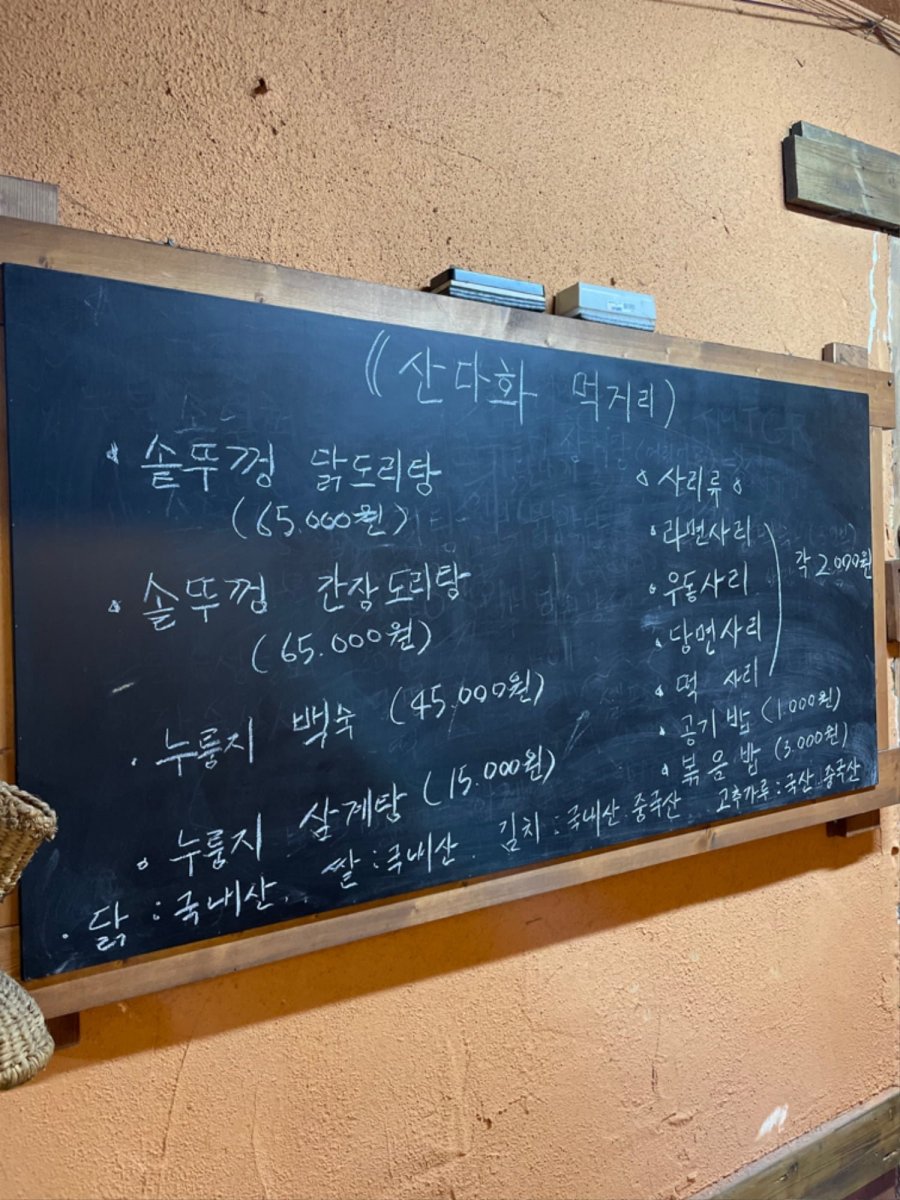 ((산다화 먹거리)
솥뚜껑 닭도리탕
(65.000원)
솥뚜껑 간장도리탕
(65.000원)
· 누룽지 백숙 (45.000원)
누룽지 삼계탕 (15.000원)
사리류
· 라면사리
· 우동사리
· 당면사리
· 떡 사리
각 2.000원
· 공기밥 (1.000원)
· 볶음밥 (3.000원)
· 닭 : 국내산. 쌀 : 국내산. 김치 : 국내산. 중국산 고추가루 : 국산. 중국산